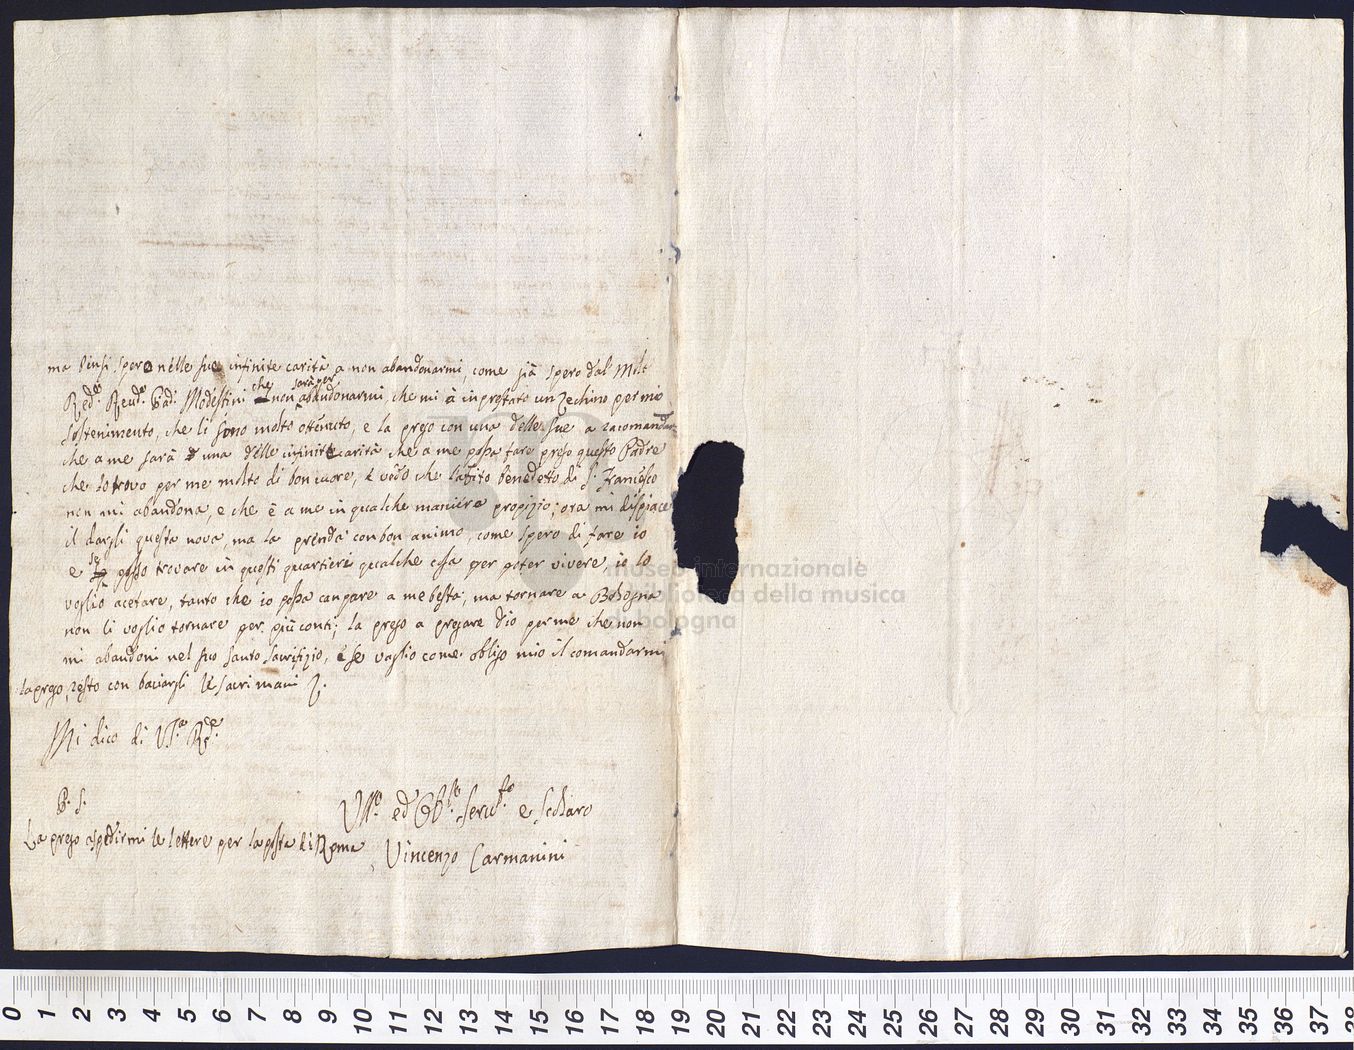 ma Pensi spero nelle sue infinite carità a non abandonarmi, come già spero dal Molt
Red:º Reud:º Pad: Modestini che non sarà per abandonarmi, che mi à inprestato un Zechino per mio
sostenimento, che li sono molto ottenuto, e la prego con una delle sue a racomandar
che a me sarà una delle infinite carità che a me possa fare preso questo Padre
che lo trovo per me molto di bon cuore, e vedo che l'abito benedetto di S. Francesco
non mi abandona, e che è a me in qualche maniera propizio; ora mi dispiace
il dargli questa nova, ma la prenda con bon animo, come spero di fare io
e se posso trovare in questi quartieri qualche cosa per poter vivere, io lo
voglio acetare, tanto che io possa canpare a me basta, ma tornare a Bologna
non li voglio tornare per più conti; la prego a pregare dio per me che non
mi abandoni nel suo santo sacrifizio, e se vaglio come obligo mio il comandarmi
la prego, resto con baciargli le sacri mani
Mi dico di V.ª R.
P. S.
Um.º ed Ob.º Seru.º e Scolaro
La prego a spedirmi le lettere per la posta di Roma
Vincenzo Carmanini
museo internazionale
e biblioteca della musica
di bologna
0 1 2 3 4 5 6 7 8 9 10 11 12 13 14 15 16 17 18 19 20 21 22 23 24 25 26 27 28 29 30 31 32 33 34 35 36 37 38